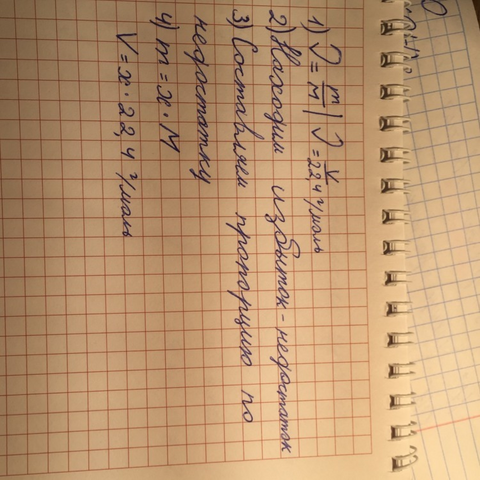 1) ν = m/M | ν = V/22,4 г/моль
2) Находим избыток - недостаток
3) Составляем пропорцию по
недостатку
4) m = x · M
V = x · 22,4 г/моль